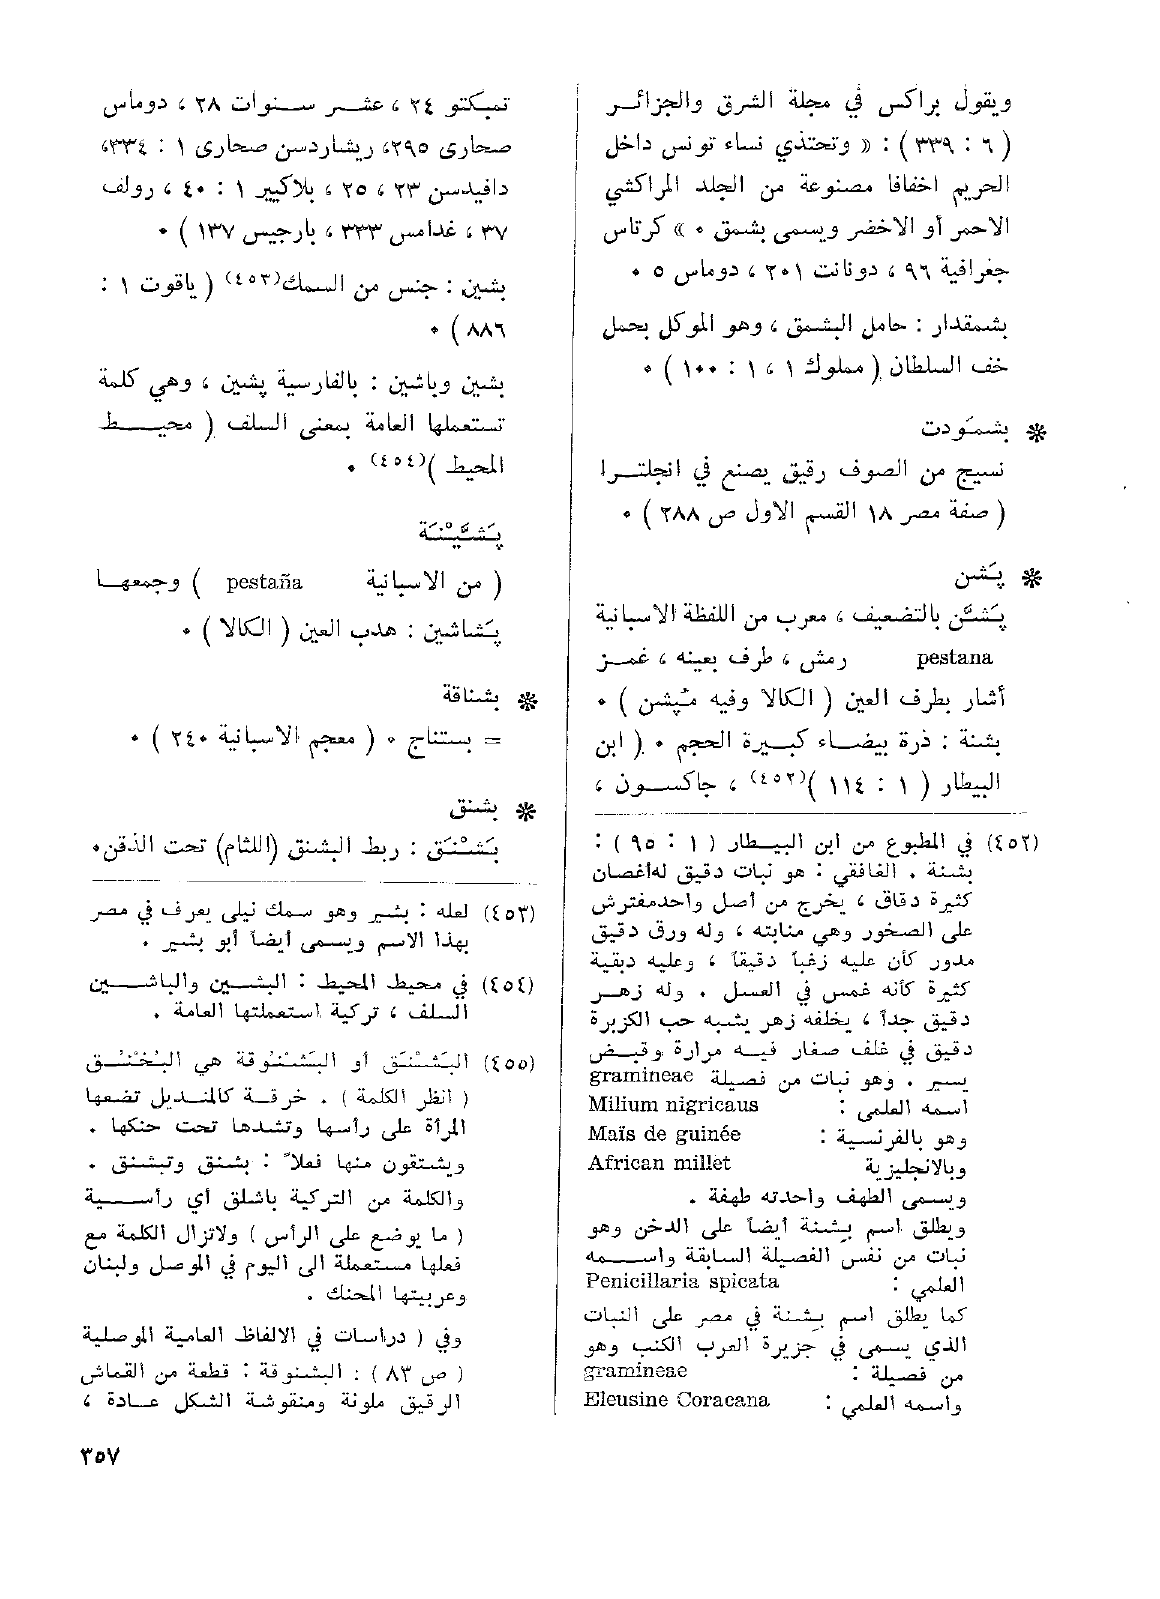 ويقول براكس في مجلة الشرق والجزائر
( ٦ : ٣٣٩ ) : « وتحتذي نساء تونس داخل
الحريم اخفافا مصنوعة من الجلد المراكشي
الاحمر أو الاخضر ويسمى بشمق ٠ » كرتاس
جغرافية ٩٦ ، دونانت ٢٠١ ، دوماس ٥ ٠
بشمقدار : حامل البشمق ، وهو الموكل بحمل
خف السلطان ( مملوك ١ ، ١ : ١٠٠ ) ٠
❋ بشمَودت
نسيج من الصوف رقيق يصنع في انجلترا
( صفة مصر ١٨ القسم الاول ص ٢٨٨ ) ٠
❋ پَشن
پَشَّن بالتضعيف ، معرب من اللفظة الاسبانية
pestana رمش ، طرف بعينه ، غمز
أشار بطرف العين ( الكالا وفيه مُپشن ) ٠
بشنة : ذرة بيضاء كبيرة الحجم ٠ ( ابن
البيطار ( ١ : ١١٤ )(٤٥٢) ، جاكسون ،
(٤٥٢) في المطبوع من ابن البيطار ( ١ : ٩٥ ) :
بشنة . الغافقي : هو نبات دقيق له أغصان
كثيرة دقاق ، يخرج من أصل واحد مفترش
على الصخور وهي منابته ، وله ورق دقيق
مدور كأن عليه زغباً دقيقاً ، وعليه دبقية
كثيرة كأنه غمس في العسل . وله زهر
دقيق جداً ، يخلفه زهر يشبه حب الكزبرة
دقيق في غلف صغار فيه مرارة وقبض
يسير . وهو نبات من فصيلة gramineae
اسمه العلمي : Milium nigricaus
وهو بالفرنسية : Maïs de guinée
وبالانجليزية African millet
ويسمى الطهف واحدته طهفة .
ويطلق اسم بشنة أيضاً على الدخن وهو
نبات من نفس الفصيلة السابقة واسمه
العلمي : Penicillaria spicata
كما يطلق اسم بشنة في مصر على النبات
الذي يسمى في جزيرة العرب الكنب وهو
من فصيلة : gramineae
واسمه العلمي : Eleusine Coracana
تمبكتو ٢٤ ، عشر سنوات ٢٨ ، دوماس
صحارى ٢٩٥، ريشاردسن صحارى ١ : ٣٣٤،
دافيدسن ٢٣ ، ٢٥ ، بلاكيير ١ : ٤٠ ، رولف
٣٧ ، غدامس ٣٣٣ ، بارجيس ١٣٧ ) ٠
بشين : جنس من السمك(٤٥٣) ( ياقوت ١ :
٨٨٦ ) ٠
بشين وباشين : بالفارسية پشين ، وهي كلمة
تستعملها العامة بمعنى السلف ( محيط
المحيط )(٤٥٤) ٠
پَشَّيْنَة
( من الاسبانية pestaña ) وجمعها
پَشاشين : هدب العين ( الكالا ) ٠
❋ بشناقة
= بستناج ٠ ( معجم الاسبانية ٢٤٠ ) ٠
❋ بشنق
بَشْنَق : ربط البشنق (اللثام) تحت الذقن٠
(٤٥٣) لعله : بشير وهو سمك نيلي يعرف في مصر
بهذا الاسم ويسمى أيضاً أبو بشير .
(٤٥٤) في محيط المحيط : البشين والباشين
السلف ، تركية استعملتها العامة .
(٤٥٥) البَشْنَق أو البَشْنُوقة هي البُخْنُق
( انظر الكلمة ) . خرقة كالمنديل تضعها
المرأة على رأسها وتشدها تحت حنكها .
ويشتقون منها فعلاً : بشنق وتبشنق .
والكلمة من التركية باشلق أي رأسية
( ما يوضع على الرأس ) ولاتزال الكلمة مع
فعلها مستعملة الى اليوم في الموصل ولبنان
وعربيتها المحنك .
وفي ( دراسات في الالفاظ العامية الموصلية
( ص ٨٣ ) : البشنوقة : قطعة من القماش
الرقيق ملونة ومنقوشة الشكل عادة ،
٣٥٧